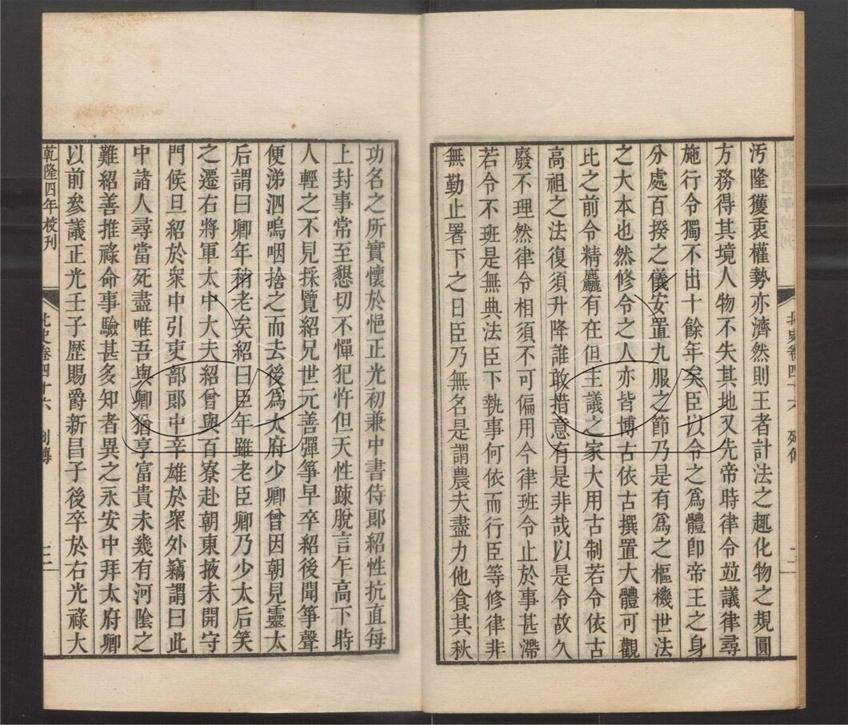 汚隆獲衷權勢亦濟然則王者計法之趣化物之規圓
方務得其境人物不失其地又先帝時律令竝議律尋
施行令獨不出十餘年矣臣以令之爲體卽帝王之身
分處百揆之儀安置九服之節乃是有爲之樞機世法
之大本也然修令之人亦皆博古依古撰置大體可觀
比之前令精麤有在但主議之家大用古制若令依古
高祖之法復須升降誰敢措意有是非哉以是令故久
廢不理然律令相須不可偏用今律班令止於事甚滯
若令不班是無典法臣下執事何依而行臣等修律非
無勤止署下之日臣乃無名是謂農夫盡力他食其秋
功名之所實懷於悒正光初兼中書侍郞紹性抗直每
上封事常至懇切不憚犯忤但天性疎脫言乍高下時
人輕之不見採覽紹兄世元善彈箏早卒紹後聞箏聲
便涕泗嗚咽捨之而去後爲太府少卿曾因朝見靈太
后謂曰卿年稍老矣紹曰臣年雖老臣卿乃少太后笑
之遷右將軍太中大夫紹曾與百寮赴朝東掖未開守
門候旦紹於衆中引吏部郞中辛雄於衆外竊謂曰此
中諸人尋當死盡唯吾與卿猶享富貴未幾有河陰之
難紹善推祿命事驗甚多知者異之永安中拜太府卿
以前參議正光壬子歷賜爵新昌子後卒於右光祿大
乾隆四年校刊
北史卷四十六 列傳